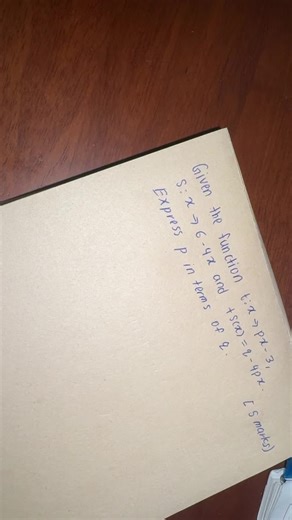 Given the function t: x → px - 3,
s: x → 6 - 4x and ts(x) = q - 4px.
Express p in terms of q.
[5 marks]